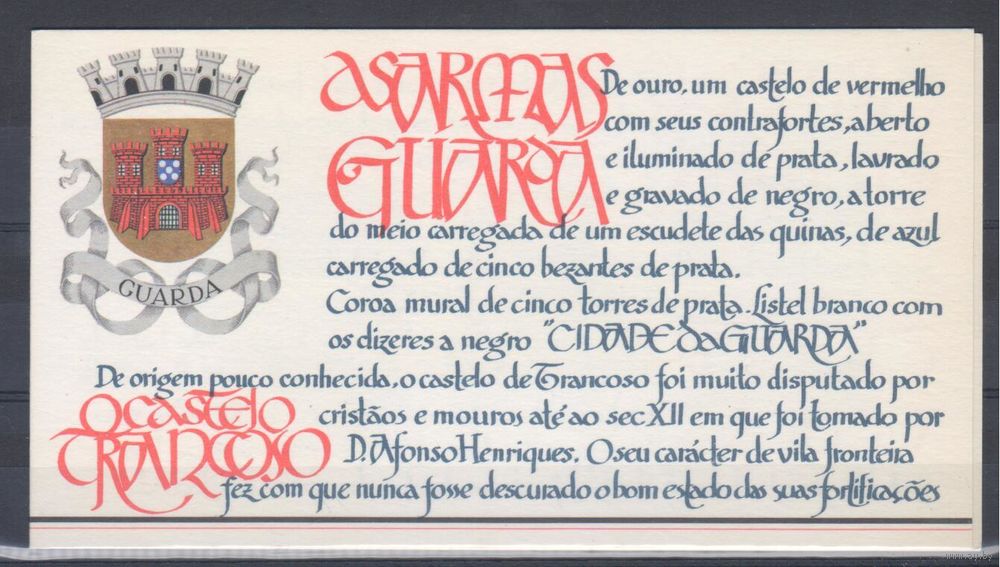 AS ARMAS
GUARDA
GUARDA
De ouro, um castelo de vermelho
com seus contrafortes, aberto
e iluminado de prata, lavrado
e gravado de negro, a torre
do meio carregada de um escudete das quinas, de azul
carregado de cinco bezantes de prata.
Coroa mural de cinco torres de prata. Listel branco com
os dizeres a negro "CIDADE da GUARDA"
De origem pouco conhecida, o castelo de Trancoso foi muito disputado por
O CASTELO
TRANCOSO
cristãos e mouros até ao sec XII em que foi tomado por
D. Afonso Henriques. O seu carácter de vila fronteira
fez com que nunca fosse descurado o bom estado das suas fortificações